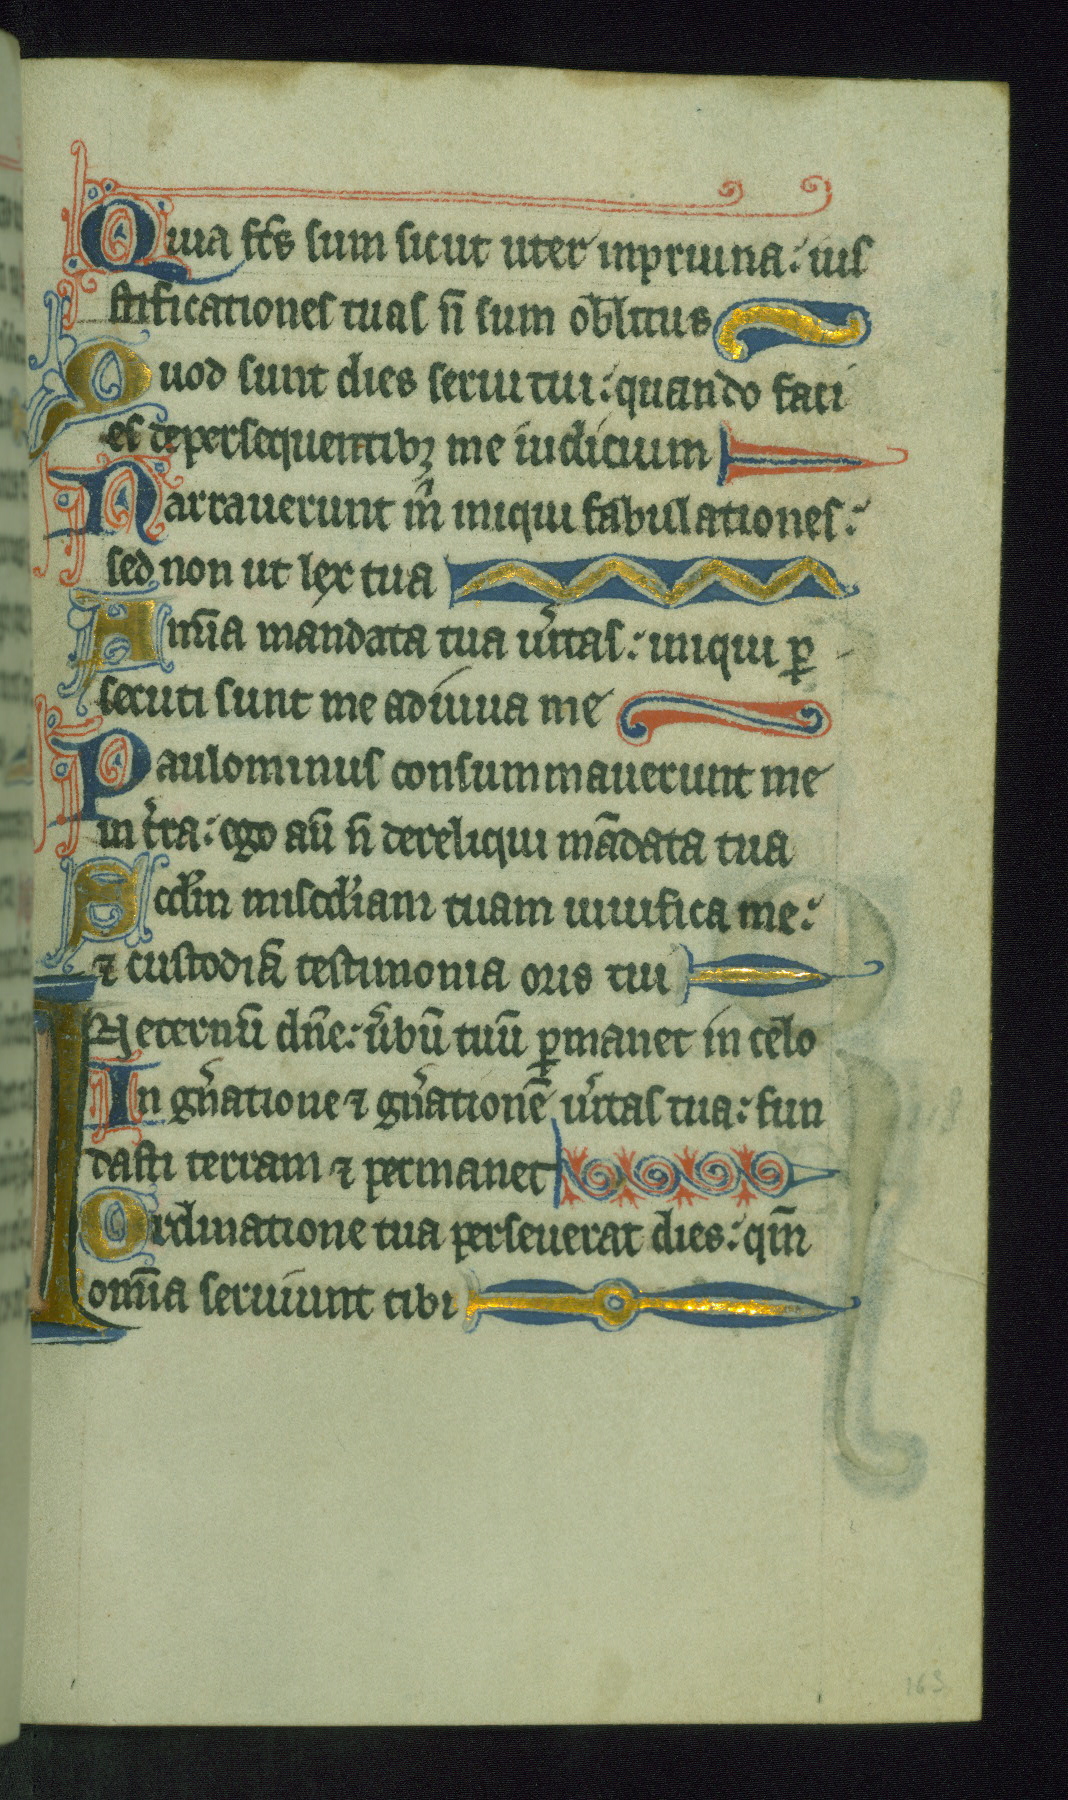 Quia fc̄s sum sicut uter in pruina: ius
tificationes tuas n̄ sum oblitus
Quod sunt dies serui tui: quando faci
es de persequentibꝫ me iudicium
Narrauerunt m̄ iniqui fabulationes:
sed non ut lex tua
Om̄ia mandata tua u͛itas: iniqui ꝑ
secuti sunt me adiuua me
Paulominus consummauerunt me
in t͛ra: ego aū n̄ dereliqui mādata tua
Scd̄m mis̄cdiam tuam uiuifica me:
⁊ custodiā testimonia oris tui
IN eternū dn̄e: u͛bū tuū ꝑmanet in celo
In gn͛atione ⁊ gn͛ationē u͛itas tua: fun
dasti terram ⁊ permanet
Ordinatione tua perseuerat dies: qm̄
om̄ia seruiunt tibi
163